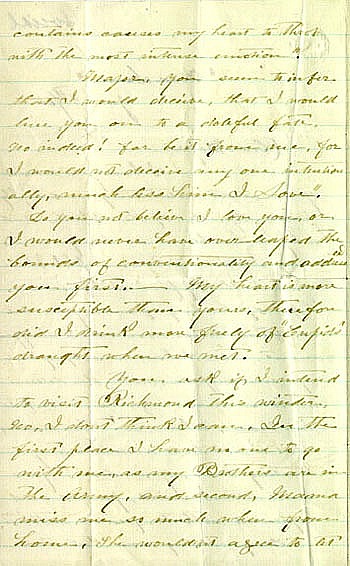 contains causes my heart to throb
with the most intense emotion".
Major, you seem to infer
that I would deceive, that I would
lure you on to a doleful fate.
No indeed! far be it from me, for
I would not deceive any one intention
ally, much less him I love".
Do you not believe I love you, or
I would never have over leaped the
bounds of conventionality and address
you first. — My heart is more
susceptible than yours, therefore
did I drink more freely of "Cupid's
draught when we met.
You ask if I intend
to visit Richmond this winter,
No, I dont think I can. In the
first place I have no one to go
with me, as my Brothers are in
The Army, and second, Mama
miss me so much when from
home, She wouldnt agree to let